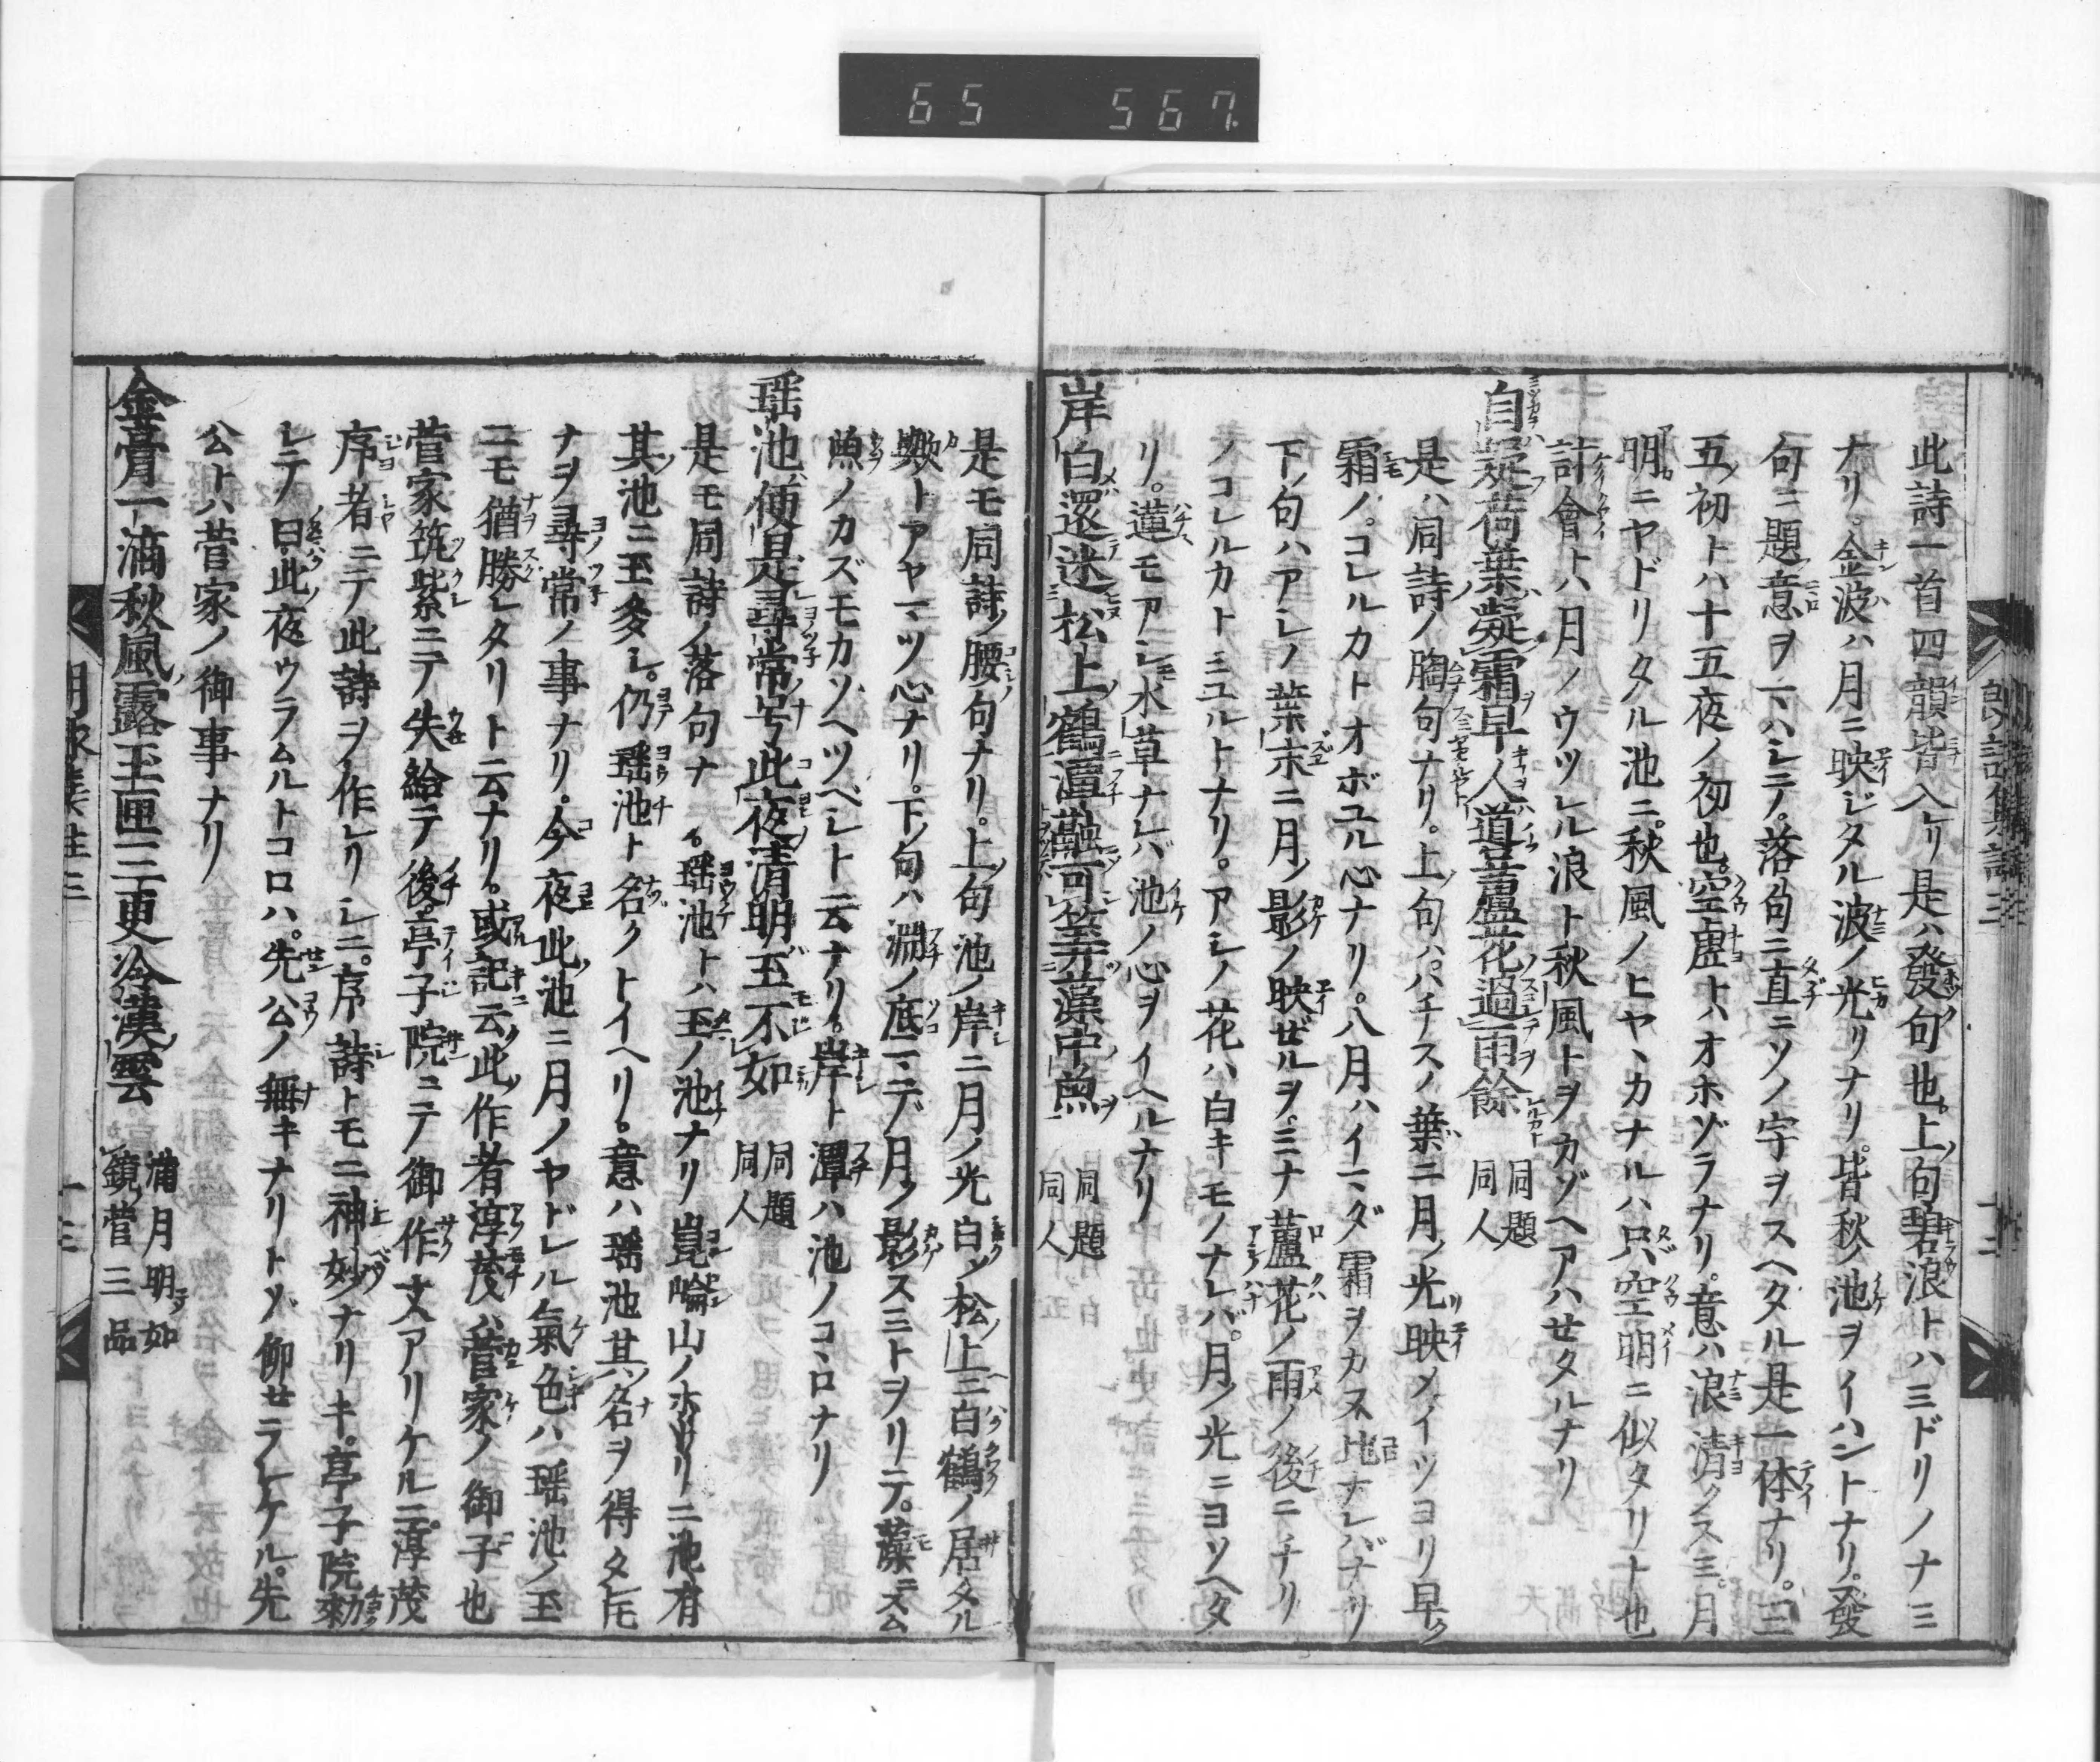 65 567.
此詩一首四韻皆入レリ是ハ發句也。上ノ句碧浪トハミドリノナミ
ナリ。金波ハ月ニ映ジタル波ノ光リナリ。皆秋ノ池ヲイハントナリ。發
句ニ題ノ意ヲマハシテ。落句ニ直ニソノ字ヲスヘタル是一体ナリ。三
五ノ初トハ十五夜ノ初也。空虚トハオホゾラナリ。意ハ浪清クスミ。月
明ニヤドリタル池ニ。秋風ノヒヤヽカナルハ只空明ニ似タリナ也
計會トハ月ノウツレル浪ト秋風トヲカゾヘアハセタルナリ
自疑荷葉凝霜早人道蘆花過雨餘 同題 同人
是ハ同詩ノ胸句ナリ。上ノ句ハ。ハチスノ葉ニ月ノ光映メイツヨリ早ク
霜ノ。コレルカトオボユル心ナリ。八月ハイマダ霜ヲカヌ比ナレバナリ
下ノ句ハアシノ葉末ニ月ノ影ノ映ゼルヲ。ミナ蘆花ノ雨ノ後ニチリ
ノコレルカトミユルトナリ。アシノ花ハ白キモノナレバ。月ノ光ニヨソヘタ
リ。蓮モアシモ水草ナレバ池ノ心ヲイヘルナリ
岸白還迷松上鶴潭融可筭藻中魚 同題 同人
是モ同詩ノ腰句ナリ。上ノ句池ノ岸ニ月ノ光白ク松ノ上ニ白鶴ノ居タル
歟トアヤマツ心ナリ。下ノ句ハ淵ノ底マデ月ノ影スミトヲリテ。藻ニスム
魚ノカズモカソヘツヘシト云ナリ。岸ト潭ハ池ノコヽロナリ
瑶池便是尋常号此夜清明玉不如 同題 同人
是モ同詩ノ落句ナリ。瑶池トハ玉ノ池ナリ崑崘山ノホトリニ池有
其ノ池ニ玉多シ。仍瑶池ト名クトイヘリ。意ハ瑶池其ノ名ヲ得タレ𪜈
ナヲ尋常ノ事ナリ。今夜此ノ池ニ月ノヤドレル氣色ハ瑶池ノ玉
ニモ猶勝レタリト云ナリ。或記云ク此ノ作者淳茂ハ菅家ノ御子也
菅家筑紫ニテ失給テ後。亭子院ニテ御作文アリケルニ。淳茂
序者ニテ此詩ヲ作レリシニ。序詩トモニ神妙ナリキ。亭子院勅
シテノ曰ク此ノ夜ウラムルトコロハ。先公ノ無キナリトソ仰セラレケル。先
公トハ菅家ノ御事ナリ
金膏一滴秋風露玉匣三更冷漢雲 満月明如 鏡菅三品